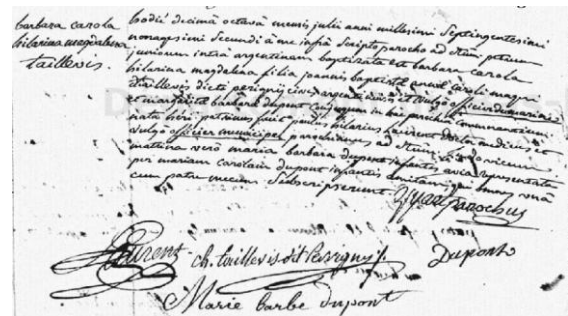 barbara carola
hilarina magdalena
taillevis.
hodie decima octava mensis julii anni millesimi Septingentesimi
nonagesimi Secundi à me infra Scripto parocho ad Stum petrum
juniorem intra argentinam baptizata est barbara carola
hilarina magdalena filia joannis baptistæ caroli mag.
taillevis dicti civis argentinensis et vulgò officier
et margaritæ barbaræ dupont conjugum in hac parochia commorantium
nata heri. patrinus fuit paulus hilarius laurent doctor medicus et
vulgò officier municipal parochianus ad Stum ludovicum
matrina verò maria barbara dupont infantis avia repræsentata
per mariam carolam dupont infantis amitam, qui omnes unà
cum patre mecum Subscripserunt.
parochus
Laurent ch. taillevis Dupont
Marie barbe dupont